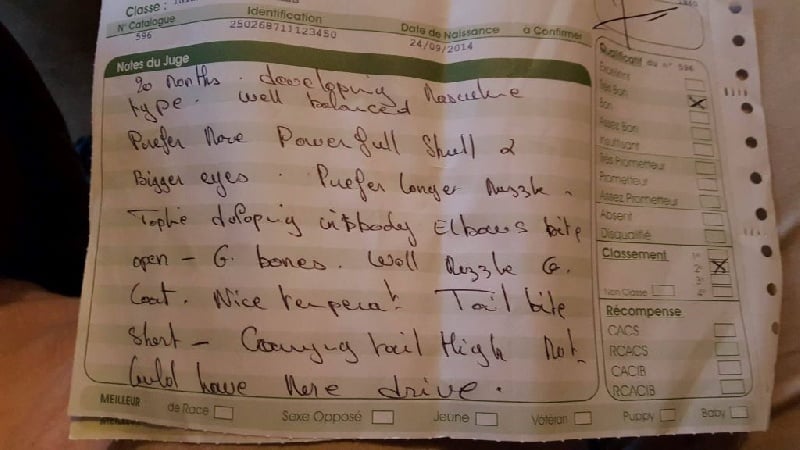 Classe :
N° Catalogue Identification Date de Naissance à Confirmer
596 250268711123450 24/09/2014
Notes du Juge
20 Months. developing Masculine
type. well balanced
Prefer More Powerfull Skull &
Bigger eyes. Prefer longer Muzzle.
body Elbows bite
open - G. bones. Well Muzzle G.
Coat. Nice temperat. Tail bite
Short - Carrying tail High Not
Could have More drive.
Qualificatif du n° 596
Excellent
Très Bon
Bon
Assez Bon
Insuffisant
Très Prometteur
Prometteur
Assez Prometteur
Absent
Disqualifié
Classement 1°
2°
3°
Non Classé 4°
Récompense
CACS
RCACS
CACIB
RCACIB
MEILLEUR de Race Sexe Opposé Jeune Vétéran Puppy Baby